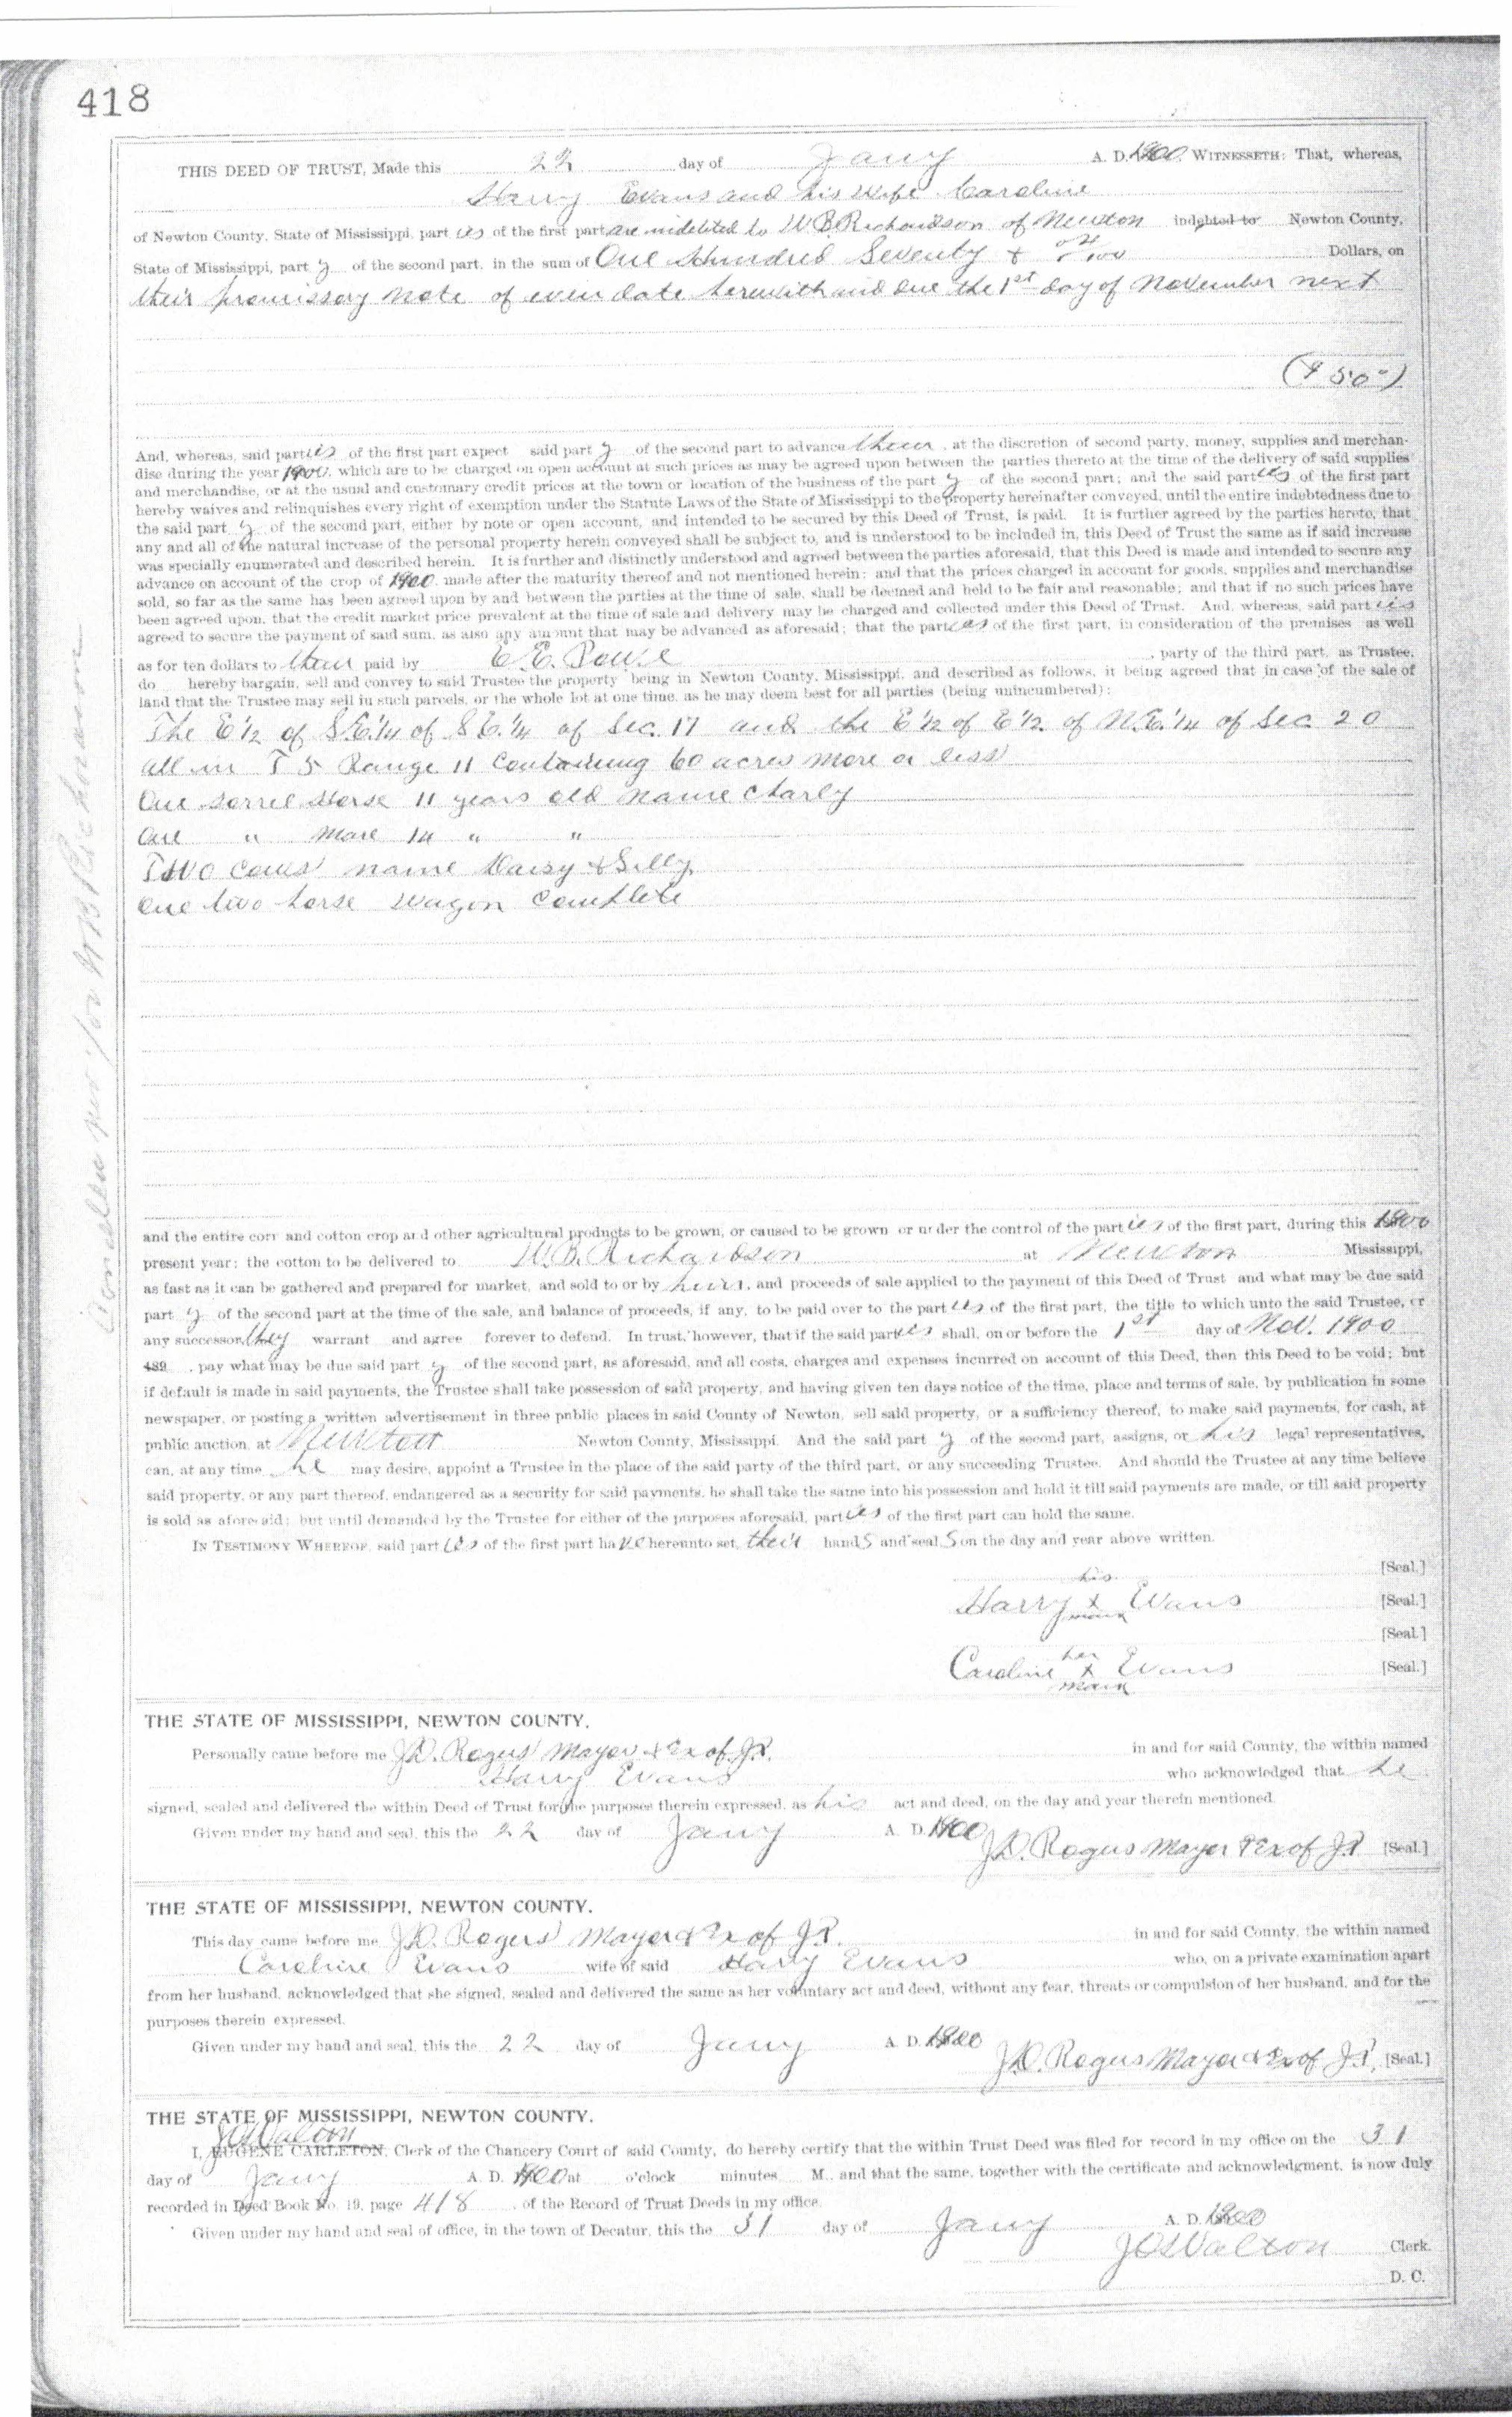 418
THIS DEED OF TRUST, Made this 22 day of Jany A. D. 1900. WITNESSETH: That, whereas,
Harry Evans and his wife Caroline
of Newton County, State of Mississippi, part ies of the first part are indebted to W B Richardson of Newton indebted to Newton County,
State of Mississippi, part y of the second part, in the sum of One Hundred Seventy & 04/100 Dollars, on
their promissory note of even date herewith and due the 1st day of November next
And, whereas, said parties of the first part expect said part y of the second part to advance them, at the discretion of second party, money, supplies and merchan-
dise during the year 1900, which are to be charged on open account at such prices as may be agreed upon between the parties thereto at the time of the delivery of said supplies
and merchandise, or at the usual and customary credit prices at the town or location of the business of the part y of the second part; and the said parties of the first part
hereby waives and relinquishes every right of exemption under the Statute Laws of the State of Mississippi to the property hereinafter conveyed, until the entire indebtedness due to
the said part y of the second part, either by note or open account, and intended to be secured by this Deed of Trust, is paid. It is further agreed by the parties hereto, that
any and all of the natural increase of the personal property herein conveyed shall be subject to, and is understood to be included in, this Deed of Trust the same as if said increase
was specially enumerated and described herein. It is further and distinctly understood and agreed between the parties aforesaid, that this Deed is made and intended to secure any
advance on account of the crop of 1900, made after the maturity thereof and not mentioned herein; and that the prices charged in account for goods, supplies and merchandise
sold, so far as the same has been agreed upon by and between the parties at the time of sale, shall be deemed and held to be fair and reasonable; and that if no such prices have
been agreed upon, that the credit market price prevalent at the time of sale and delivery may be charged and collected under this Deed of Trust. And, whereas, said parties
agreed to secure the payment of said sum, as also any amount that may be advanced as aforesaid; that the parties of the first part, in consideration of the premises as well
as for ten dollars to them paid by , party of the third part, as Trustee,
do hereby bargain, sell and convey to said Trustee the property being in Newton County, Mississippi, and described as follows, it being agreed that in case of the sale of
land that the Trustee may sell in such parcels, or the whole lot at one time, as he may deem best for all parties (being unincumbered):
The E 1/2 of S.E. 1/4 of S E. 1/4 of Sec. 17 and the E 1/2 of E 1/2 of N.E. 1/4 of Sec 20
all in T 5 Range 11 Containing 60 acres more or less
One sorrel Horse 11 years old name Charly
One " mare 14 " "
Two cows name Daisy &
One two horse wagon complete
and the entire corn and cotton crop and other agricultural products to be grown, or caused to be grown or under the control of the parties of the first part, during this 1900
present year; the cotton to be delivered to W. B. Richardson at Newton Mississippi,
as fast as it can be gathered and prepared for market, and sold to or by him, and proceeds of sale applied to the payment of this Deed of Trust and what may be due said
part y of the second part at the time of the sale, and balance of proceeds, if any, to be paid over to the parties of the first part, the title to which unto the said Trustee, or
any successor, they warrant and agree forever to defend. In trust, however, that if the said parties shall, on or before the 1st day of Nov. 1900
189 , pay what may be due said part y of the second part, as aforesaid, and all costs, charges and expenses incurred on account of this Deed, then this Deed to be void; but
if default is made in said payments, the Trustee shall take possession of said property, and having given ten days notice of the time, place and terms of sale, by publication in some
newspaper, or posting a written advertisement in three public places in said County of Newton, sell said property, or a sufficiency thereof, to make said payments, for cash, at
public auction, at Newton Newton County, Mississippi. And the said part y of the second part, assigns, or his legal representatives,
can, at any time he may desire, appoint a Trustee in the place of the said party of the third part, or any succeeding Trustee. And should the Trustee at any time believe
said property, or any part thereof, endangered as a security for said payments, he shall take the same into his possession and hold it till said payments are made, or till said property
is sold as aforesaid; but until demanded by the Trustee for either of the purposes aforesaid, parties of the first part can hold the same.
IN TESTIMONY WHEREOF, said parties of the first part have hereunto set their hands and seals on the day and year above written.
[Seal.]
his
Harry x Evans [Seal.]
mark
[Seal.]
her
Caroline x Evans [Seal.]
mark
THE STATE OF MISSISSIPPI, NEWTON COUNTY.
Personally came before me J.D. Rogers Mayor & Ex of. J.P. in and for said County, the within named
Harry Evans who acknowledged that he
signed, sealed and delivered the within Deed of Trust for the purposes therein expressed, as his act and deed, on the day and year therein mentioned.
Given under my hand and seal, this the 22 day of Jany A. D. 1900
J.D. Rogers Mayor & Ex of J.P [Seal.]
THE STATE OF MISSISSIPPI, NEWTON COUNTY.
This day came before me J.D. Rogers Mayor & Ex of J.P. in and for said County, the within named
Caroline Evans wife of said Harry Evans who, on a private examination apart
from her husband, acknowledged that she signed, sealed and delivered the same as her voluntary act and deed, without any fear, threats or compulsion of her husband, and for the
purposes therein expressed.
Given under my hand and seal, this the 22 day of Jany A. D. 1900
J.D. Rogers Mayor & Ex of J.P. [Seal.]
THE STATE OF MISSISSIPPI, NEWTON COUNTY.
JO Walton
I, EUGENE CARLETON, Clerk of the Chancery Court of said County, do hereby certify that the within Trust Deed was filed for record in my office on the 31
day of Jany A. D. 1900 at o'clock minutes M., and that the same, together with the certificate and acknowledgment, is now duly
recorded in Deed Book No. 19, page 418 , of the Record of Trust Deeds in my office.
Given under my hand and seal of office, in the town of Decatur, this the 31 day of Jany A. D. 1900
JO Walton Clerk.
D. C.